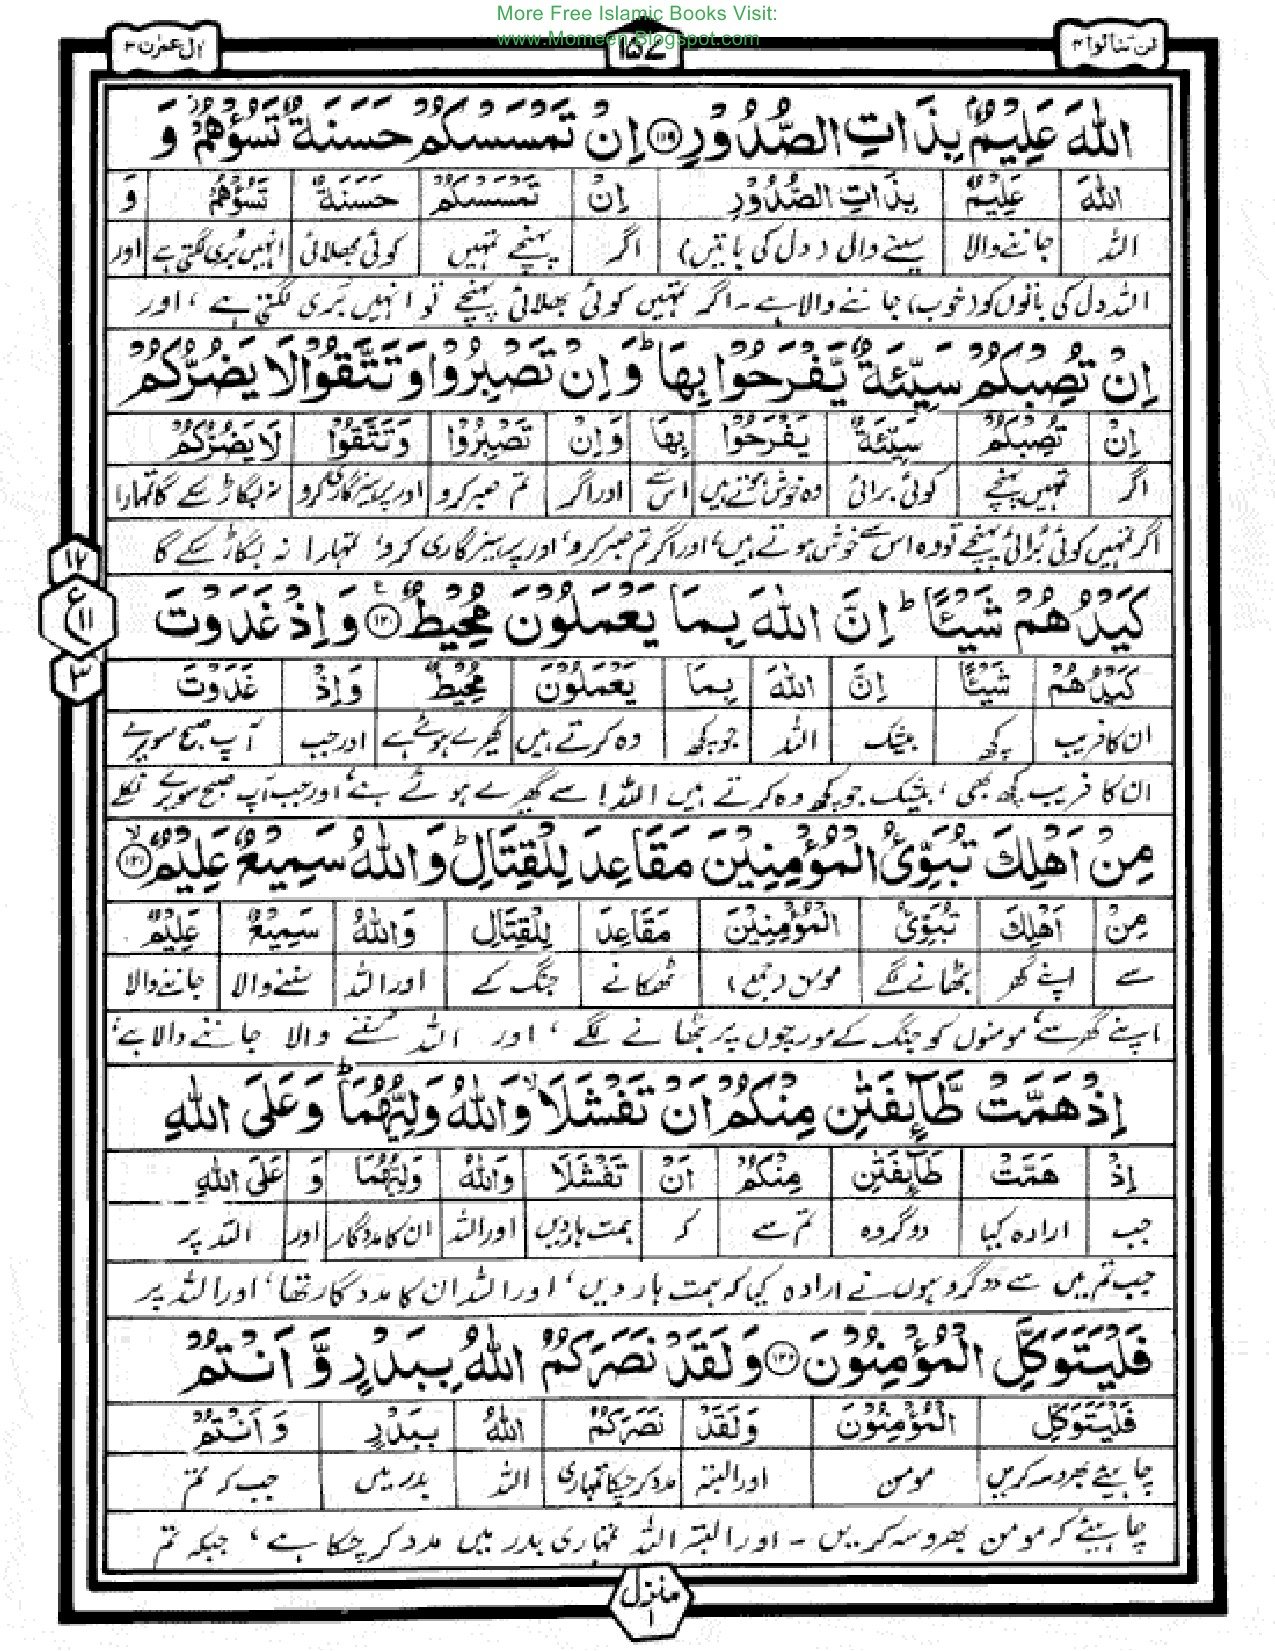 More Free Islamic Books Visit:
www.Momeen.Blogspot.com
لن تنالوا ۴
۱۵۷
اٰل عمرٰن ۳
اللّٰهَ عَلِيْمٌۢ بِذَاتِ الصُّدُوْرِ ﴿۱۱۹﴾ اِنْ تَمْسَسْكُمْ حَسَنَةٌ تَسُؤْهُمْ ؗ وَ
اللّٰهَ عَلِيْمٌ بِذَاتِ الصُّدُوْرِ اِنْ تَمْسَسْكُمْ حَسَنَةٌ تَسُؤْهُمْ وَ
اللہ جاننے والا سینے والی (دل کی باتیں) اگر پہنچے تمہیں کوئی بھلائی انہیں بُری لگتی ہے اور
اللہ دل کی باتوں کو (خوب) جاننے والا ہے ۔ اگر تمہیں کوئی بھلائی پہنچے تو انہیں بُری لگتی ہے ، اور
اِنْ تُصِبْكُمْ سَيِّئَةٌ يَّفْرَحُوْا بِهَا ؕ وَاِنْ تَصْبِرُوْا وَتَتَّقُوْا لَا يَضُرُّكُمْ
اِنْ تُصِبْكُمْ سَيِّئَةٌ يَفْرَحُوْا بِهَا وَاِنْ تَصْبِرُوْا وَتَتَّقُوْا لَا يَضُرُّكُمْ
اگر تمہیں پہنچے کوئی برائی وہ خوش ہوتے ہیں اس سے اور اگر تم صبر کرو اور پرہیزگاری کرو نہ بگاڑ سکے گا تمہارا
اگر تمہیں کوئی بُرائی پہنچے تو وہ اس سے خوش ہوتے ہیں، اور اگر تم صبر کرو، اور پرہیزگاری کرو، تمہارا نہ بگاڑ سکے گا
۱۲
ع
۱۱
۳
كَيْدُهُمْ شَيْـًٔا ؕ اِنَّ اللّٰهَ بِمَا يَعْمَلُوْنَ مُحِيْطٌ ﴿۱۲۰﴾ وَاِذْ غَدَوْتَ
كَيْدُهُمْ شَيْـًٔا اِنَّ اللّٰهَ بِمَا يَعْمَلُوْنَ مُحِيْطٌ وَاِذْ غَدَوْتَ
ان کا فریب کچھ بیشک اللہ جو کچھ وہ کرتے ہیں گھیرے ہوئے ہے اور جب آپ صبح سویرے
ان کا فریب کچھ بھی ، بیشک جو کچھ وہ کرتے ہیں اللہ! سے گھیرے ہوئے ہے ، اور جب آپ صبح سویرے نکلے
مِنْ اَهْلِكَ تُبَوِّئُ الْمُؤْمِنِيْنَ مَقَاعِدَ لِلْقِتَالِ ؕ وَاللّٰهُ سَمِيْعٌ عَلِيْمٌ ﴿۱۲۱﴾ ۙ
مِنْ اَهْلِكَ تُبَوِّئُ الْمُؤْمِنِيْنَ مَقَاعِدَ لِلْقِتَالِ وَاللّٰهُ سَمِيْعٌ عَلِيْمٌ
سے اپنے گھر بٹھانے لگے مومن (جمع) ٹھکانے جنگ کے اور اللہ سننے والا جاننے والا
اپنے گھر سے، مومنوں کو جنگ کے مورچوں پر بٹھانے لگے ، اور اللہ سننے والا جاننے والا ہے ،
اِذْ هَمَّتْ طَّآىِٕفَتٰنِ مِنْكُمْ اَنْ تَفْشَلَا ۙ وَاللّٰهُ وَلِيُّهُمَا ؕ وَعَلَى اللّٰهِ
اِذْ هَمَّتْ طَآىِٕفَتٰنِ مِنْكُمْ اَنْ تَفْشَلَا وَاللّٰهُ وَلِيُّهُمَا وَ عَلَى اللّٰهِ
جب ارادہ کیا دو گروہ تم سے کہ ہمت ہار دیں اور اللہ ان کا مددگار اور اللہ پر
جب تم میں سے دو گروہوں نے ارادہ کیا کہ ہمت ہار دیں ، اور اللہ ان کا مددگار تھا ، اور اللہ پر
فَلْيَتَوَكَّلِ الْمُؤْمِنُوْنَ ﴿۱۲۲﴾ وَلَقَدْ نَصَرَكُمُ اللّٰهُ بِبَدْرٍ وَّ اَنْتُمْ
فَلْيَتَوَكَّلِ الْمُؤْمِنُوْنَ وَلَقَدْ نَصَرَكُمْ اللّٰهُ بِبَدْرٍ وَ اَنْتُمْ
چاہیئے بھروسہ کریں مومن اور البتہ مدد کر چکا تمہاری اللہ بدر میں جب کہ تم
چاہیئے کہ مومن بھروسہ کریں ۔ اور البتہ اللہ تمہاری بدر میں مدد کر چکا ہے ، جبکہ تم
منزل ۱